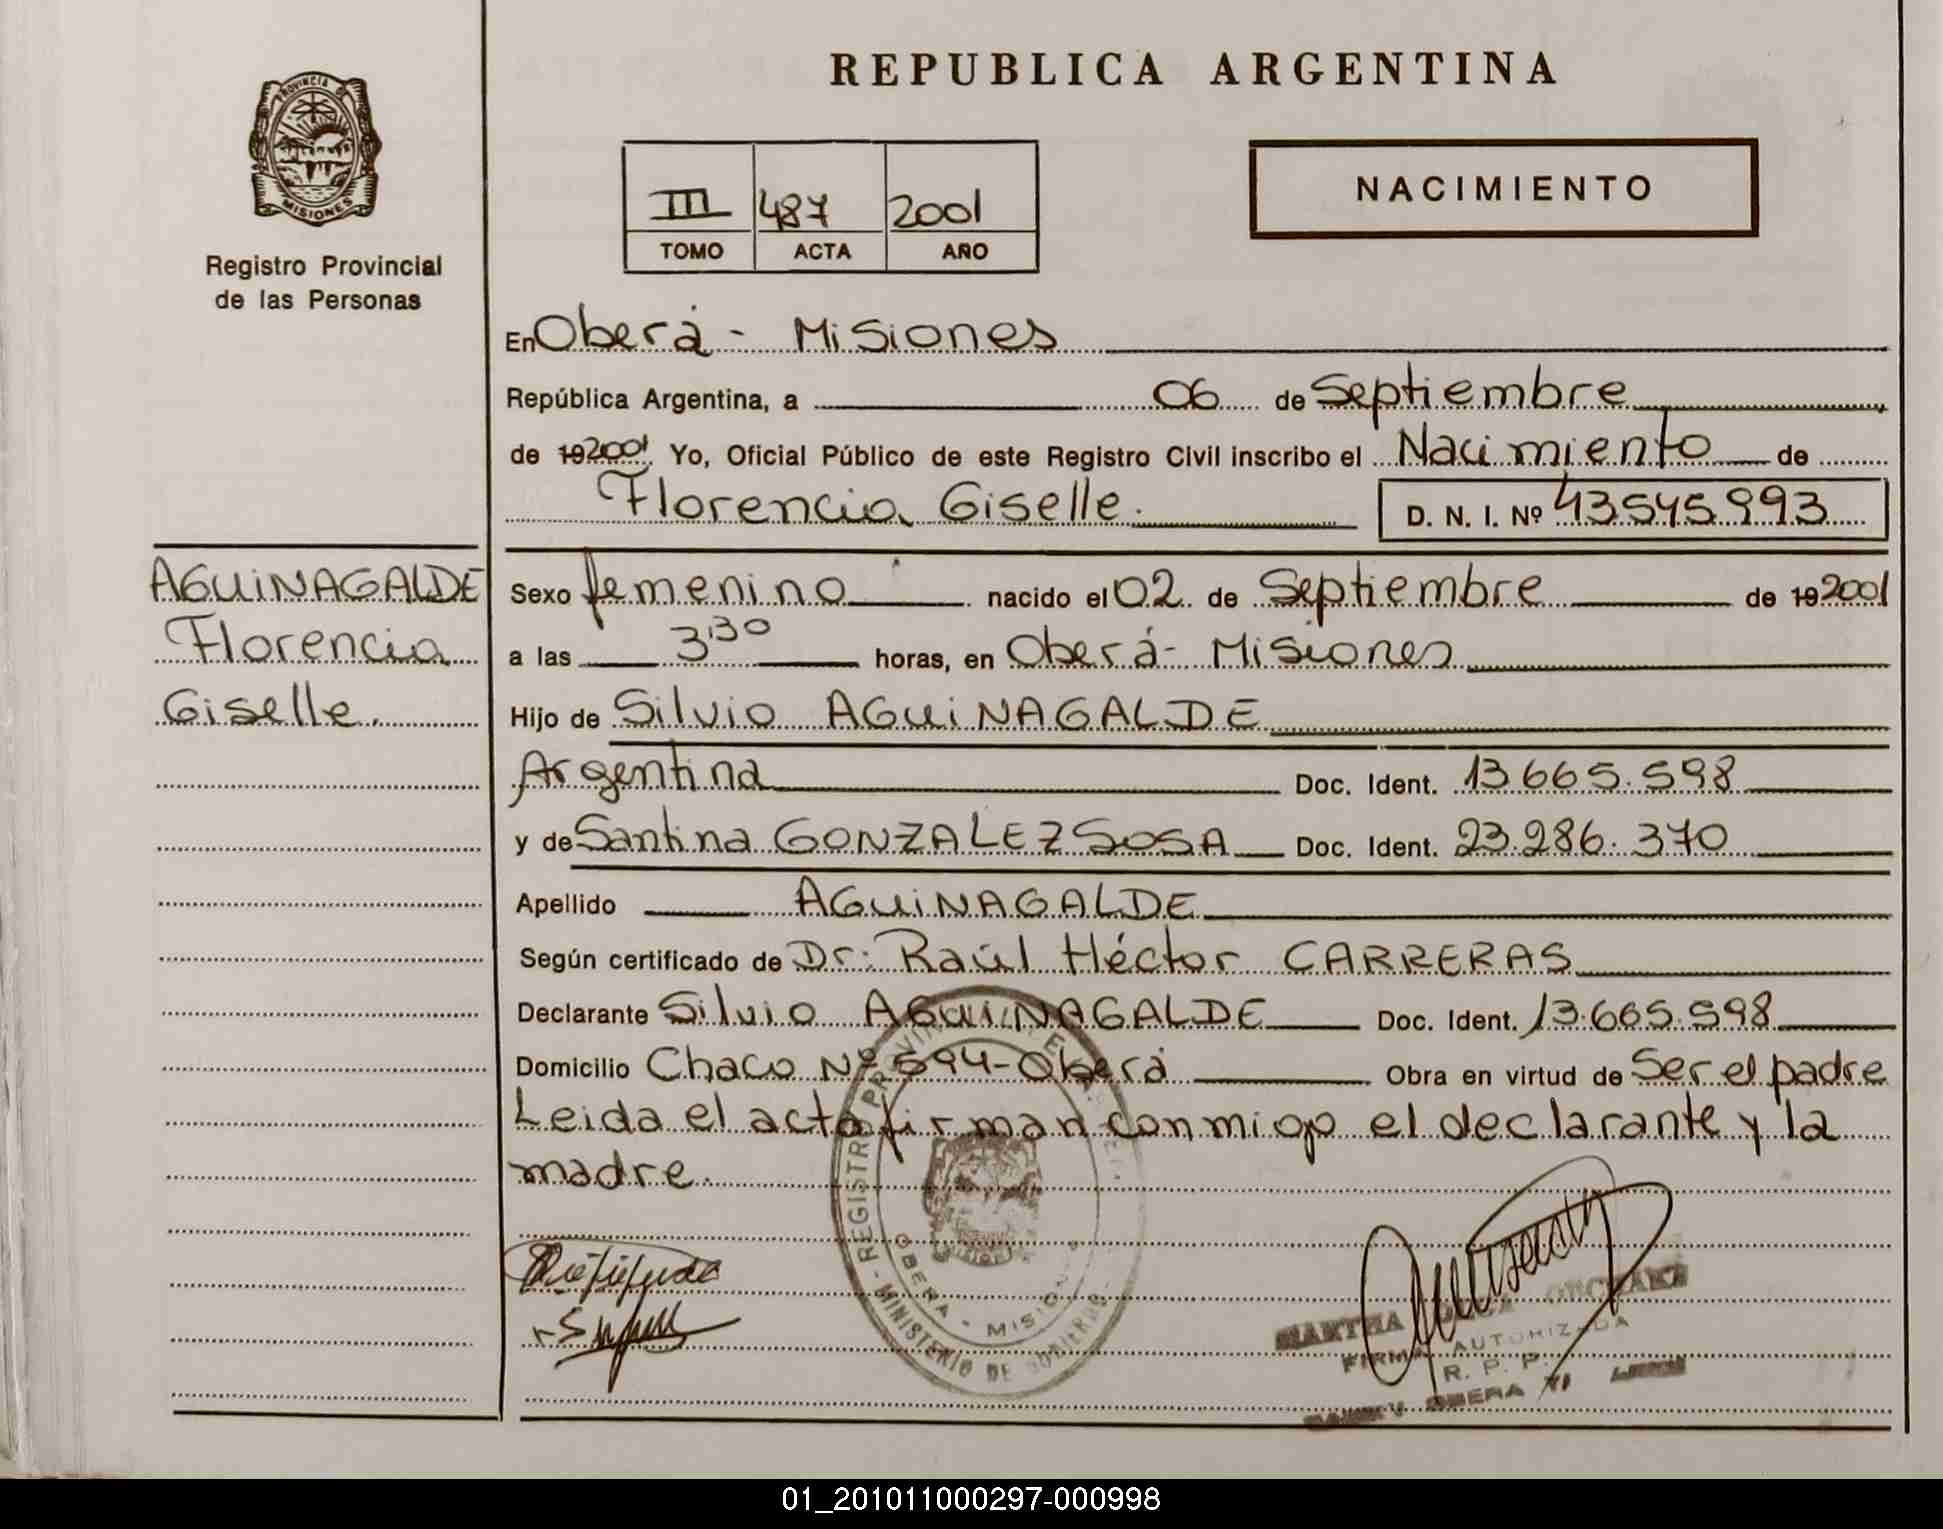 REPUBLICA ARGENTINA
PROVINCIA DE
MISIONES
Registro Provincial
de las Personas
III 487 2001
TOMO ACTA AÑO
NACIMIENTO
En Oberá - Misiones
República Argentina, a 06 de Septiembre
de 19 2001 Yo, Oficial Público de este Registro Civil inscribo el Nacimiento de
Florencia Giselle. D. N. I. Nº 43545993
AGUINAGALDE
Florencia
Giselle.
Sexo femenino nacido el 02 de Septiembre de 19 2001
a las 3:30 horas, en Oberá - Misiones
Hijo de Silvio AGUINAGALDE
Argentina Doc. Ident. 13.665.598
y de Santina GONZALEZ SOSA Doc. Ident. 23.286.370
Apellido AGUINAGALDE
Según certificado de Dr: Raúl Héctor CARRERAS
Declarante Silvio AGUINAGALDE Doc. Ident. 13.665.598
Domicilio Chaco Nº 594 - Oberá Obra en virtud de Ser el padre
Leida el acta firman conmigo el declarante y la
madre.
REGISTRO PROVINCIAL DE
- MINISTERIO DE GOBIERNO -
OBERA - MISIONES
MARTHA
FIRMA AUTORIZADA
R. P. P.
OBERA
01_201011000297-000998